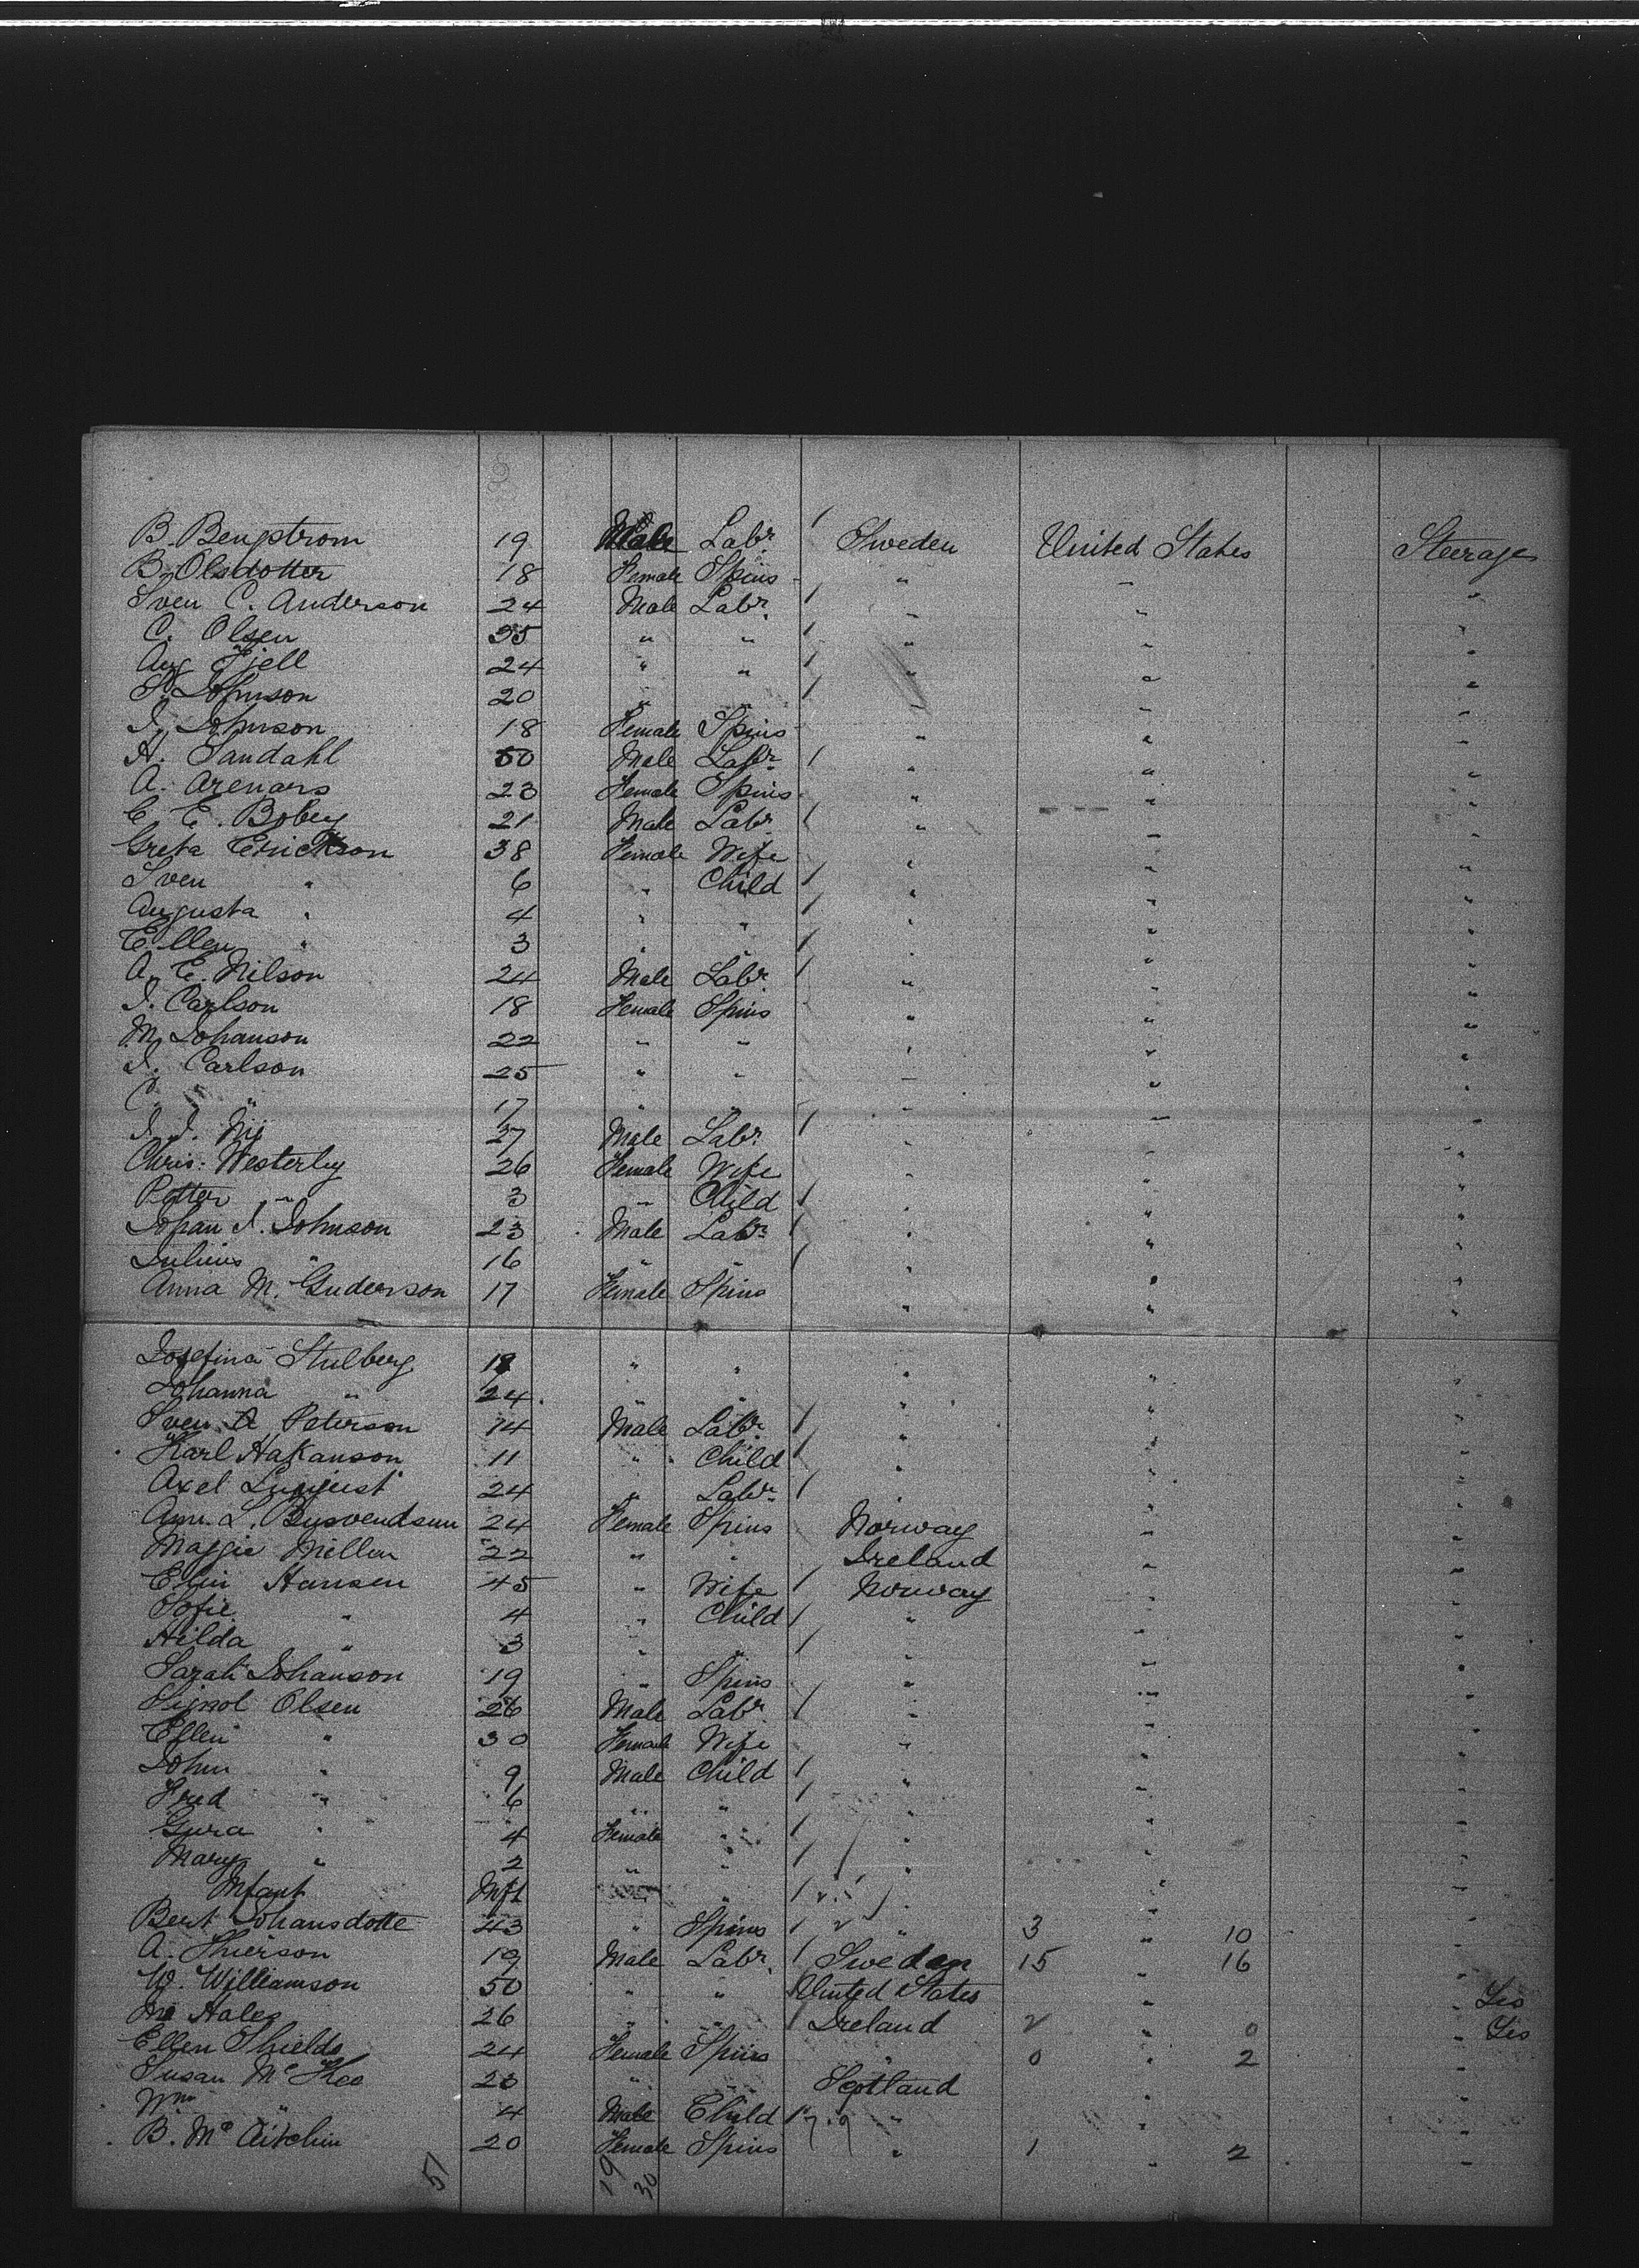 B. Bengstrom 19 Male Labr / Sweden United States Steerage
B. Olsdotter 18 Female Spins - " " "
Sven C. Anderson 24 Male Labr / " " "
C. Olsen 35 " " / " " "
Aug Fjell 24 " " / " " "
P. Johnson 20 " " / " " "
I. Johnson 18 Female Spins - " " "
A. Sandahl 50 Male Labr / " " "
A. Arenars 23 Female Spins - " " "
C. E. Bobey 21 Male Labr / " " "
Greta Erickson 38 Female Wife " " "
Sven " 6 " Child / " " "
Augusta " 4 " " / " " "
Ellen " 3 " " / " " "
A. E. Nilson 24 Male Labr / " " "
I. Carlson 18 Female Spins " " "
M. Johanson 22 " " " " "
I. Carlson 25 " " " " "
C. " 17 " " " " "
I. I. 27 Male Labr / " " "
Chris: Westerby 26 Female Wife " " "
Petter " 3 " Child / " " "
Johan I. Johnson 23 Male Labr / " " "
Julius " 16 " " / " " "
Anna M. Guderson 17 Female Spins " " "
Josefina Stulberg " " " " "
Johanna " 24 " " " " "
Sven A Peterson 14 Male Labr / " " "
Karl Hakanson 11 " Child / " " "
Axel Lunquist 24 " Labr / " " "
Ann. L. 24 Female Spins Norway " "
Maggie Mellon 22 " " Ireland " "
Elin Hansen 45 " Wife / Norway " "
Sofie " 4 " Child / " " "
Hilda " 3 " " / " " "
Sarah Johanson 19 " Spins " " "
Olsen 26 Male Labr / " " "
Ellen " 30 Female Wife " " "
John " 9 Male Child / " " "
Fred " 6 " " / " " "
Gura " 4 Female " / " " "
Mary " 2 " " / " " "
Infant Inft " / " "
Bert Johansdotte 43 " Spins / " 3 " 10 "
A. Thierson 19 Male Labr / Sweden 15 16 "
W. Williamson 50 " " United States " "
Haley 26 " " / Ireland " 0 "
Ellen Shields 24 Female Spins " 0 " 2 "
Susan McKee 20 " " Scotland " "
Wm " 4 Male Child / " " "
B. McAitchin 20 Female Spins " 1 " 2 "
51 19 30